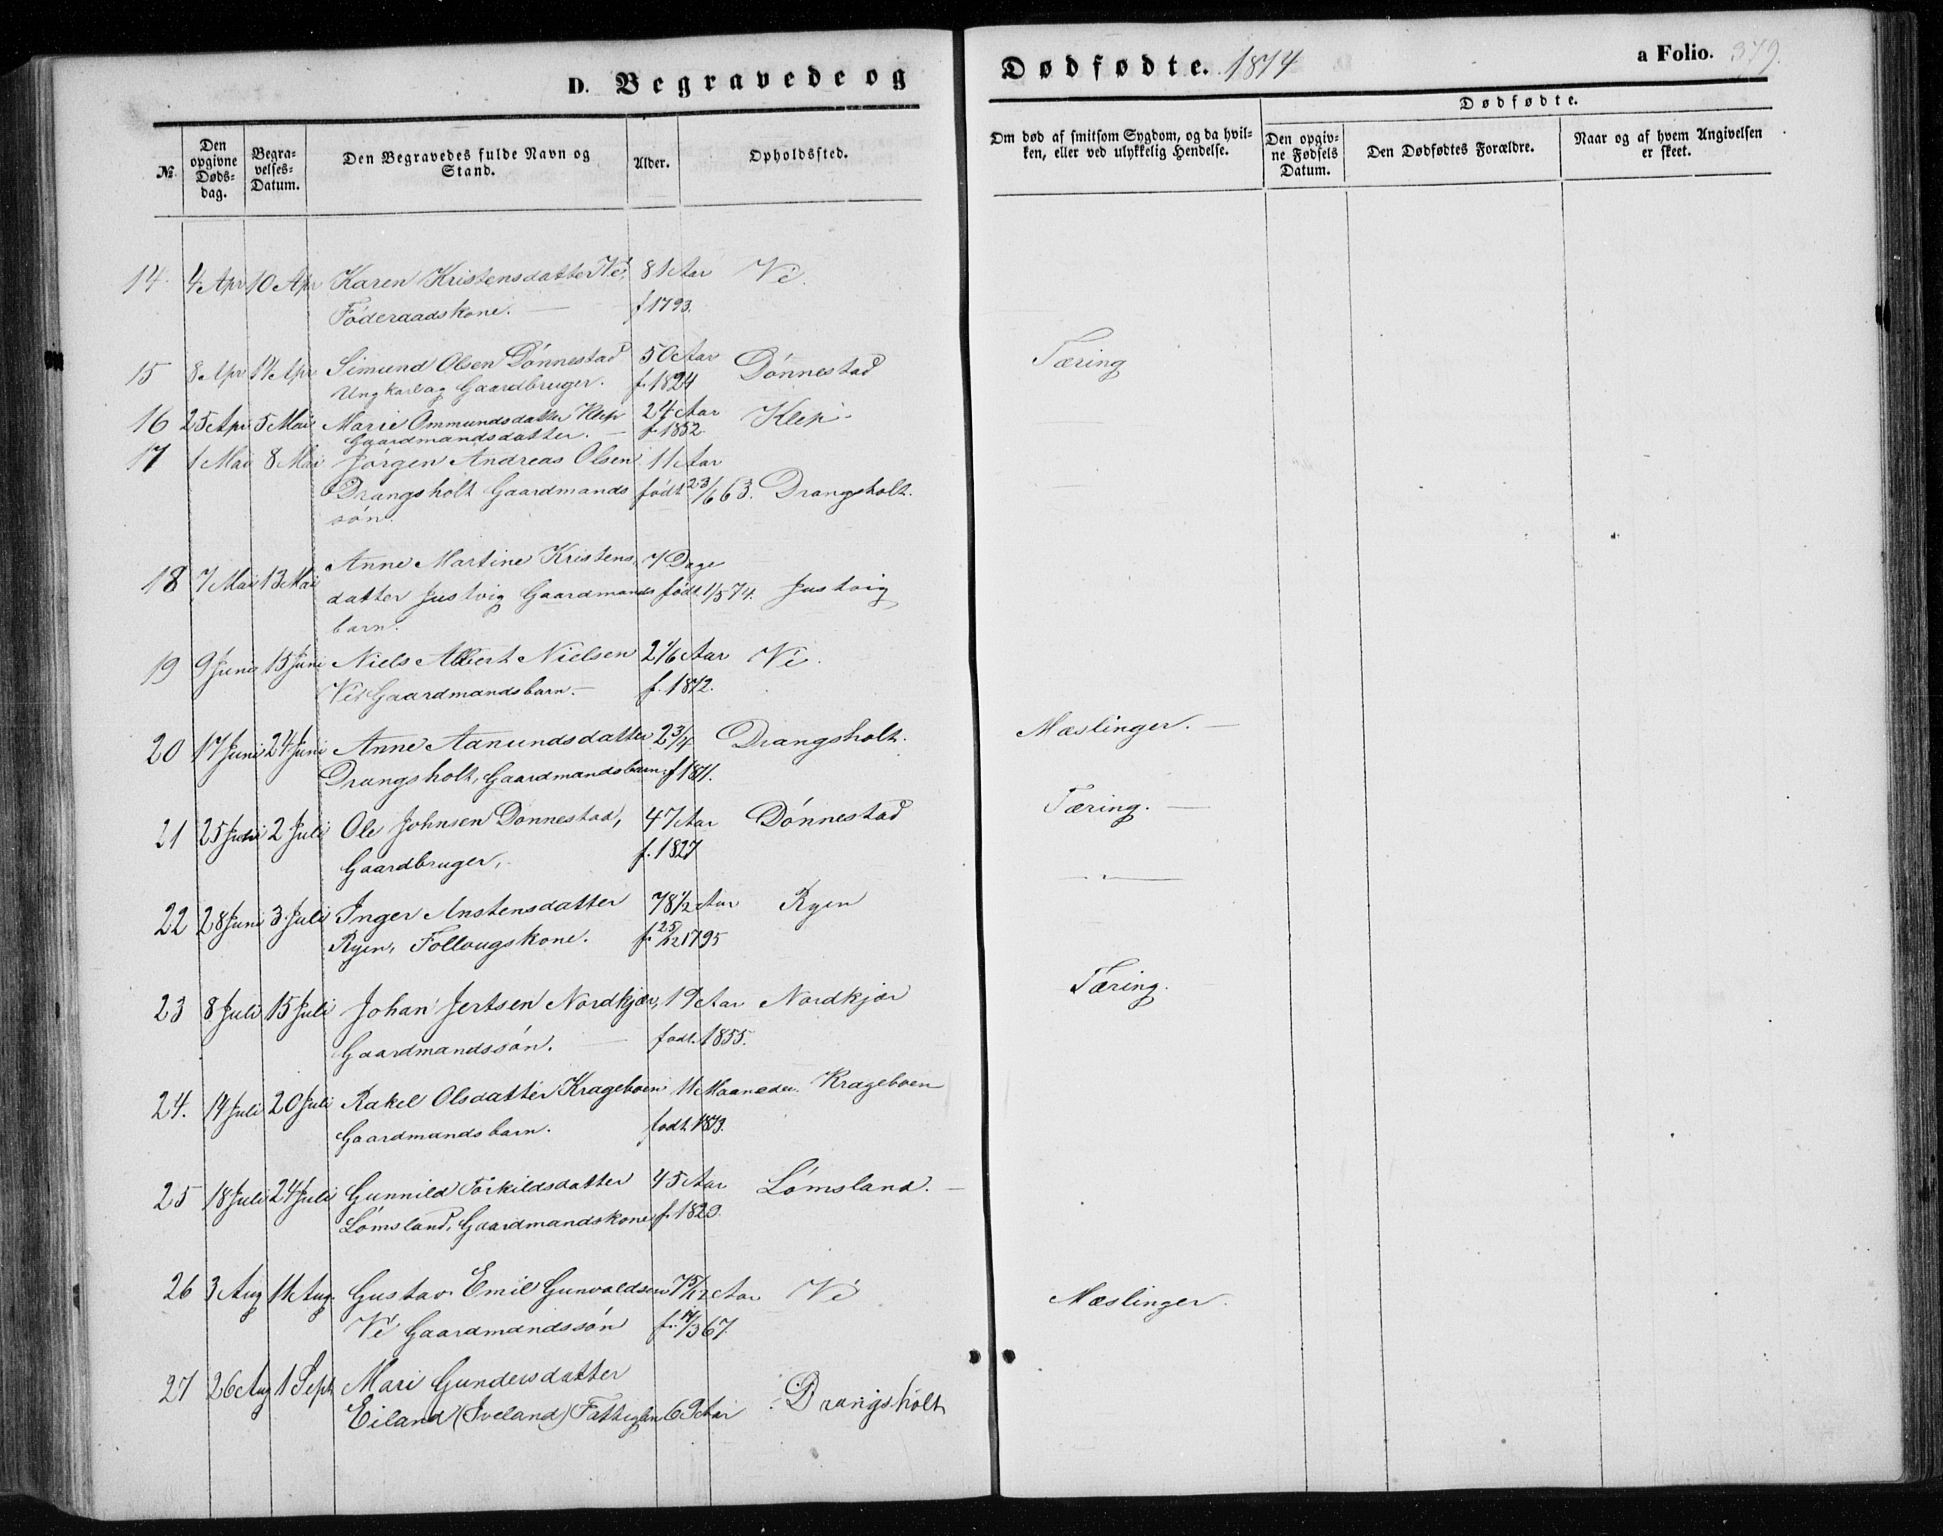 D. Begravede og
Dødfødte. 1874
a Folio. 379.
№.
Den opgivne Døds-dag.
Begra-velses-Datum.
Den Begravedes fulde Navn og Stand.
Alder.
Opholdssted.
Om død af smitsom Sygdom, og da hvil-ken, eller ved ulykkelig Hendelse.
Dødfødte.
Den opgiv-ne Fødsels Datum.
Den Dødfødtes Forældre.
Naar og af hvem Angivelsen er skeet.
14. 4 Apr 10 Apr Karen Kristensdatter Vé, 81 Aar Vé.
Föderaadskone. — f 1793.
15 8 Apr 14 Apr Simund Olsen Dönnestad 50 Aar Dönnestad Tæring
Ungkarl og Gaardbruger. f. 1824
16 25 Apr 5 Mai Marie Ommundsdatter Klep 24 Aar Klep
Gaardmandsdatter. — f 1852.
17 1 Mai 8 Mai Jörgen Andreas Olsen 11 Aar
Drangsholt Gaardmands födt 23/6 63. Drangsholt.
sön.
18 7 Mai 13 Mai Anne Martine Kristens 7 Dage
datter Justvig Gaardmands födt 1/5 74. Justvig
barn.
19 9 Juni 15 Juni Niels Albert Nielsen 2 1/6 Aar Vé.
Vé Gaardmandsbarn. — f. 1872.
20 17 Juni 24 Juni Anne Aanundsdatter 2 3/4 Drangsholt. Mæslinger. —
Drangsholt, Gaardmandsbarn, f 1871.
21 25 Juni 2 Juli Ole Johnsen Dönnestad, 47 Aar Dönnestad Tæring. —
Gaardbruger, f. 1827
22 28 Juni 3 Juli Inger Anstensdatter 78 1/2 Aar Ryen — " —
Ryen, Follougskone. f. 25/12 1795
23 8 Juli 15 Juli Johan Jertsen Nordkjær, 19 Aar Nordkjær Tæring.
Gaardmandssön. — fodt. 1855.
24. 14 Juli 20 Juli Rakel Olsdatter Krageboen 11 Maaneder Krageboen
Gaardmandsbarn. fodt 1873.
25 18 Juli 24 Juli Gunnild Torkildsdatter 45 Aar Lömsland. —
Lömsland, Gaardmandskone f. 1829.
26 3 Aug 11 Aug. Gustav Emil Gunvaldsen 7 5/12 Aar Vé Mæslinger.
Vé Gaardmandssön f. 14/3 67.
27 26 Aug 1 Sept Mari Gundersdatter
Eiland (Iveland) Fattiglem 69 Aar Drangsholt